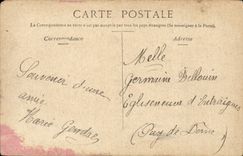 CARTE POSTALE
La Correspondance au recto n'est pas acceptée par tous les pays étrangers (Se renseigner à la Poste)
Correspondance
Adresse
Melle
Germaine Bellouin
Egliseneuve d'Entraigues
(Puy-de-Dôme)
Souvenir d'une
amie
Marie